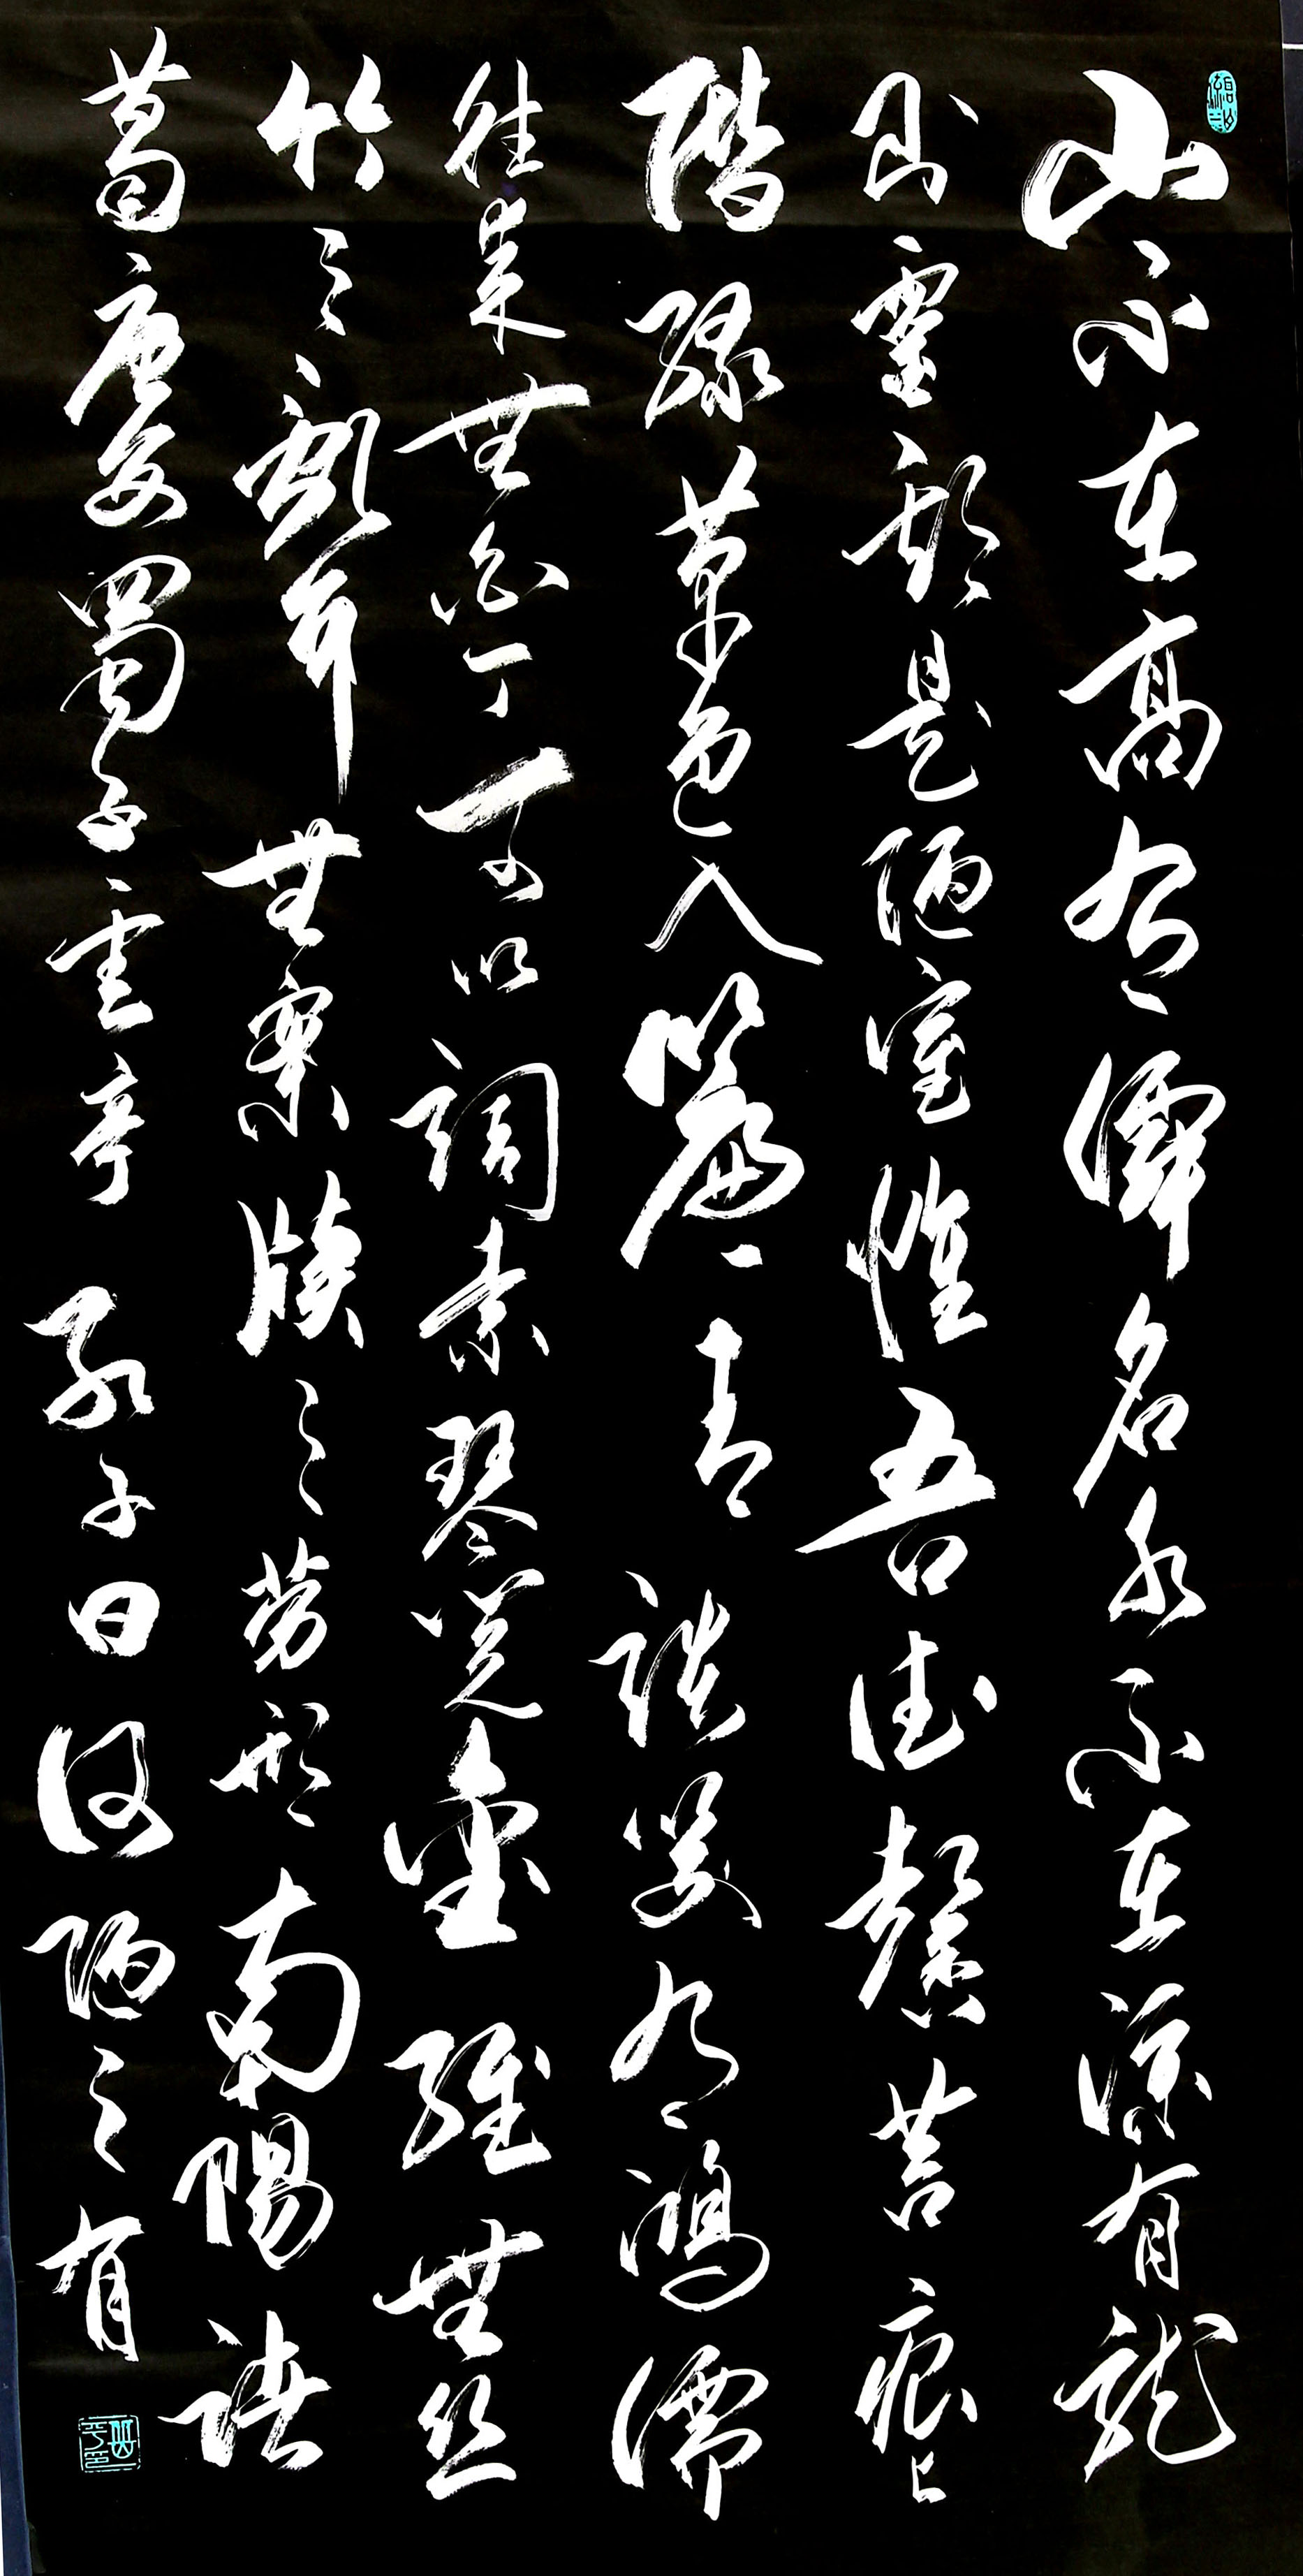 山不在高有僊名水不在深有龍
則靈斯是陋室惟吾德馨苔痕上
階綠草色入簾青談笑有鴻儒
往來無白丁可以調素琴閱金經無絲
竹之亂耳無案牘之勞形南陽諸
葛廬西蜀子雲亭孔子曰何陋之有